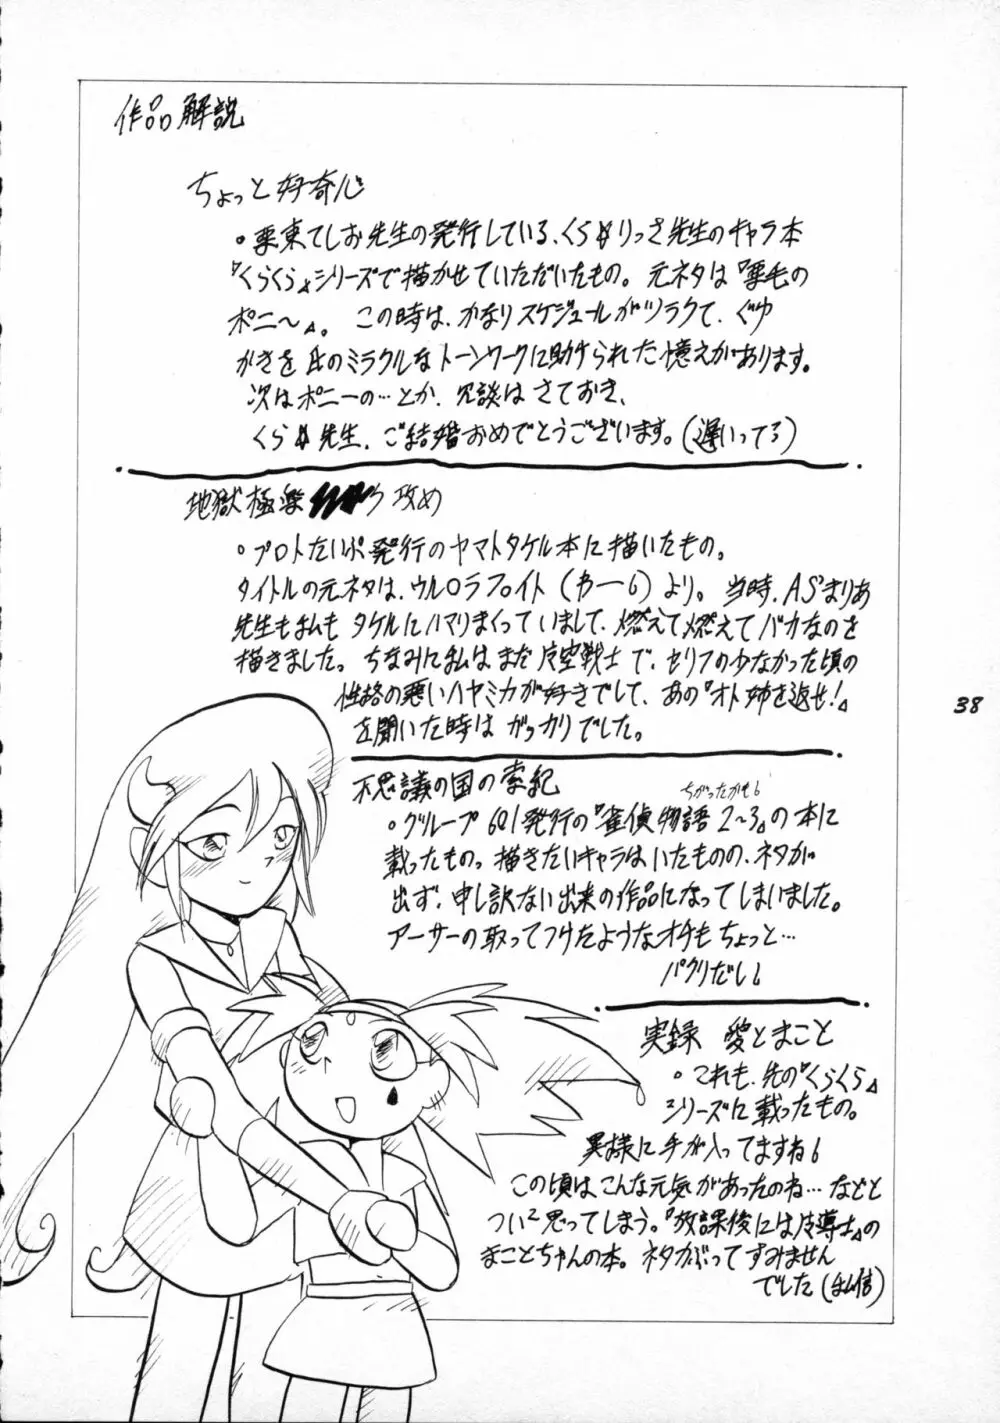 作品解説
ちょっと好奇心
。栗東てしお先生の発行している、くら☆りっさ先生のキャラ本
『くらくら』シリーズで描かせていただいたもの。元ネタは『栗毛の
ポニ〜』。この時は、かなりスケジュールがツラクて、ぐゆ
がきを氏のミラクルなトーンワークに助けられた憶えがあります。
次はポニーの…とか、冗談はさておき、
くら☆先生、ご結婚おめでとうございます。(遅いってる)
地獄極楽 攻め
。プロトたいぷ発行のヤマトタケル本に描いたもの。
タイトルの元ネタは、ウルロラファイト(わー6)より。当時、AS'まりあ
先生も私もタケルにハマりまくっていまして、燃えて燃えてバカなのを
描きました。ちなみに私はまだ 空戦士で、セリフの少なかった頃の
性格の悪いハヤミカが好きでして、あの『オト姉を返せ!』
を聞いた時はガッカリでした。
不思議の国の索紀
ちがったかも6
。グループ601発行の『雀偵物語2〜3』の本に
載ったもの。描きたいキャラはいたものの、ネタが
出ず、申し訳ない出来の作品になってしまいました。
アーサーの取ってつけたようなオチもちょっと…
パクリだし6
38
実録 愛とまこと
。これも、先の『くらくら』
シリーズに載ったもの。
異様に手が入ってますね6
この頃はこんな元気があったのね…などと
つい2思ってしまう。『放課後には 導士』の
まことちゃんの本。ネタかぶってすみません
でした(私信)